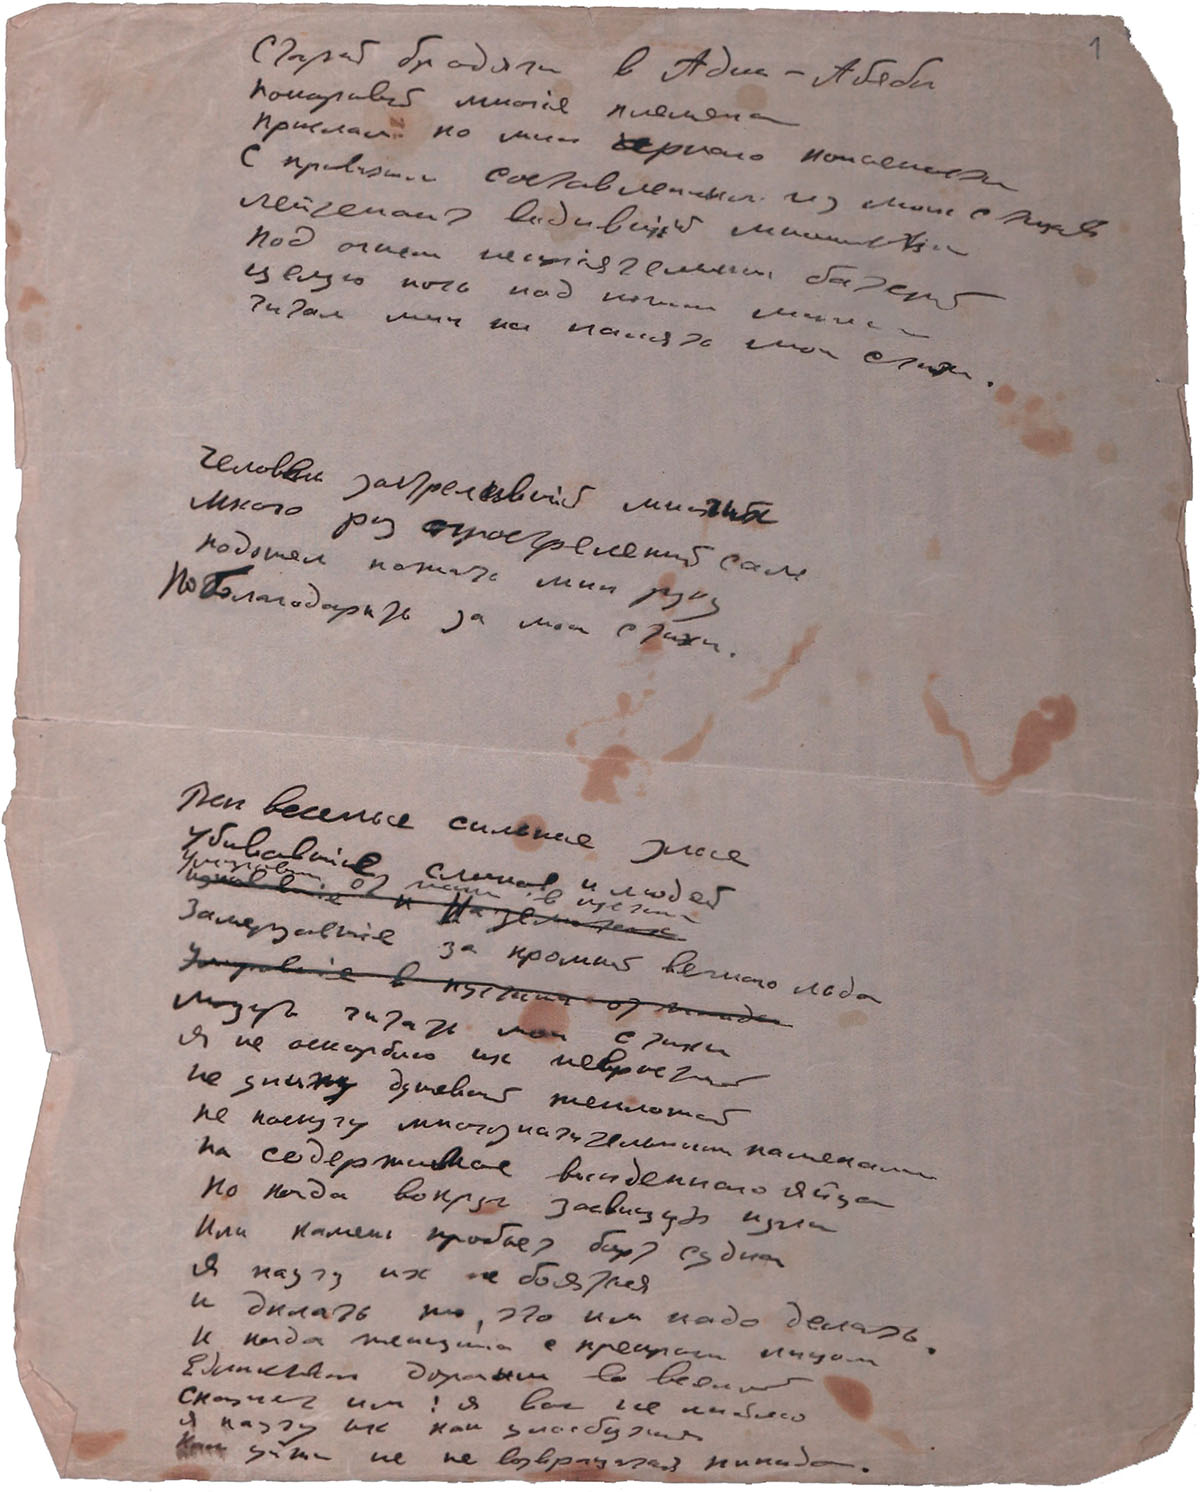 1
Старый бродяга в Адис-Абебе
Покоривший многие племена
Прислал ко мне черного копьеносца
С приветом составленным из моих стихов
лейтенант водивший миноноски
Под огнем неприятельских батарей
целую ночь над южным морем
читал мне на память мои стихи.
Человек застреливший многих
Много раз простреленный сам
подошел пожать мне руку
Поблагодарить за мои стихи.
веселые сильные злые
убивавшие слонов и людей
умиравшие от жажды в пустыне
Замерзавшие за кромкой вечного льда
Умиравшие в пустыне от жажды
могут читать мои стихи
Я не оскорблю их неврастенией
не унижу душевной теплотой
не наскучу многозначительными намеками
на содержимое выеденного яйца
Но когда вокруг засвищут пули
Или камень пробьет борт судна
Я научу их не бояться
и делать то, что им надо делать.
И когда женщина с прекрасным лицом
Единственно дорогим во вселенной
скажет им: я вас не люблю
я научу их как улыбнуться
уйти и не возвращаться никогда.